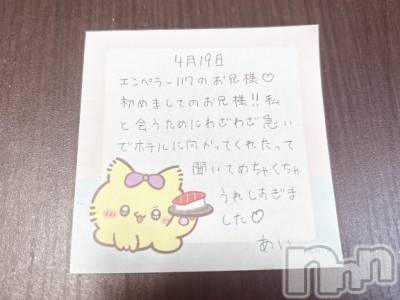 4月19日
エンペラー117のお兄様♡
初めましてのお兄様!!私
と会うためにわざわざ急い
でホテルに向かってくれたって
聞いてめちゃくちゃ
うれしすぎま
した♡
あい